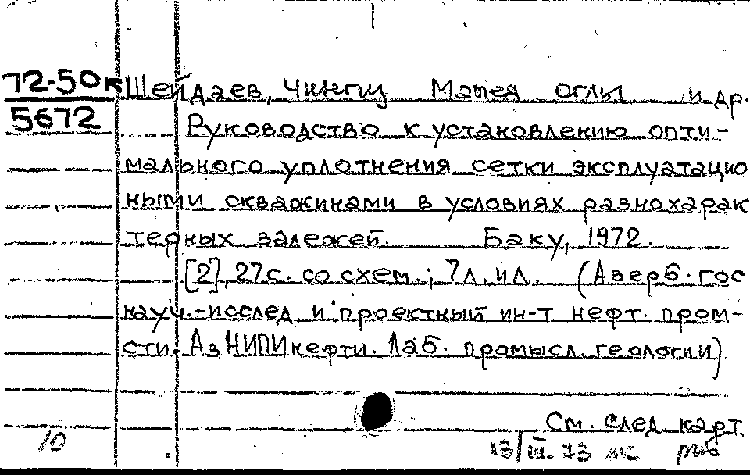 72-50к Шейдаев, Чингиз Мамед оглы и др.
5672
Руководство к установлению опти-
мального уплотнения сетки эксплуатацио
ными скважинами в условиях разнохарак
терных залежей. Баку, 1972.
[2], 27с. со схем.; 7л. ил. (Азерб. гос
науч.-исслед и проектный ин-т нефт. пром-
сти. АзНИПИнефти. Лаб. промысл. геологии)
См. след карт.
10
13/III.73